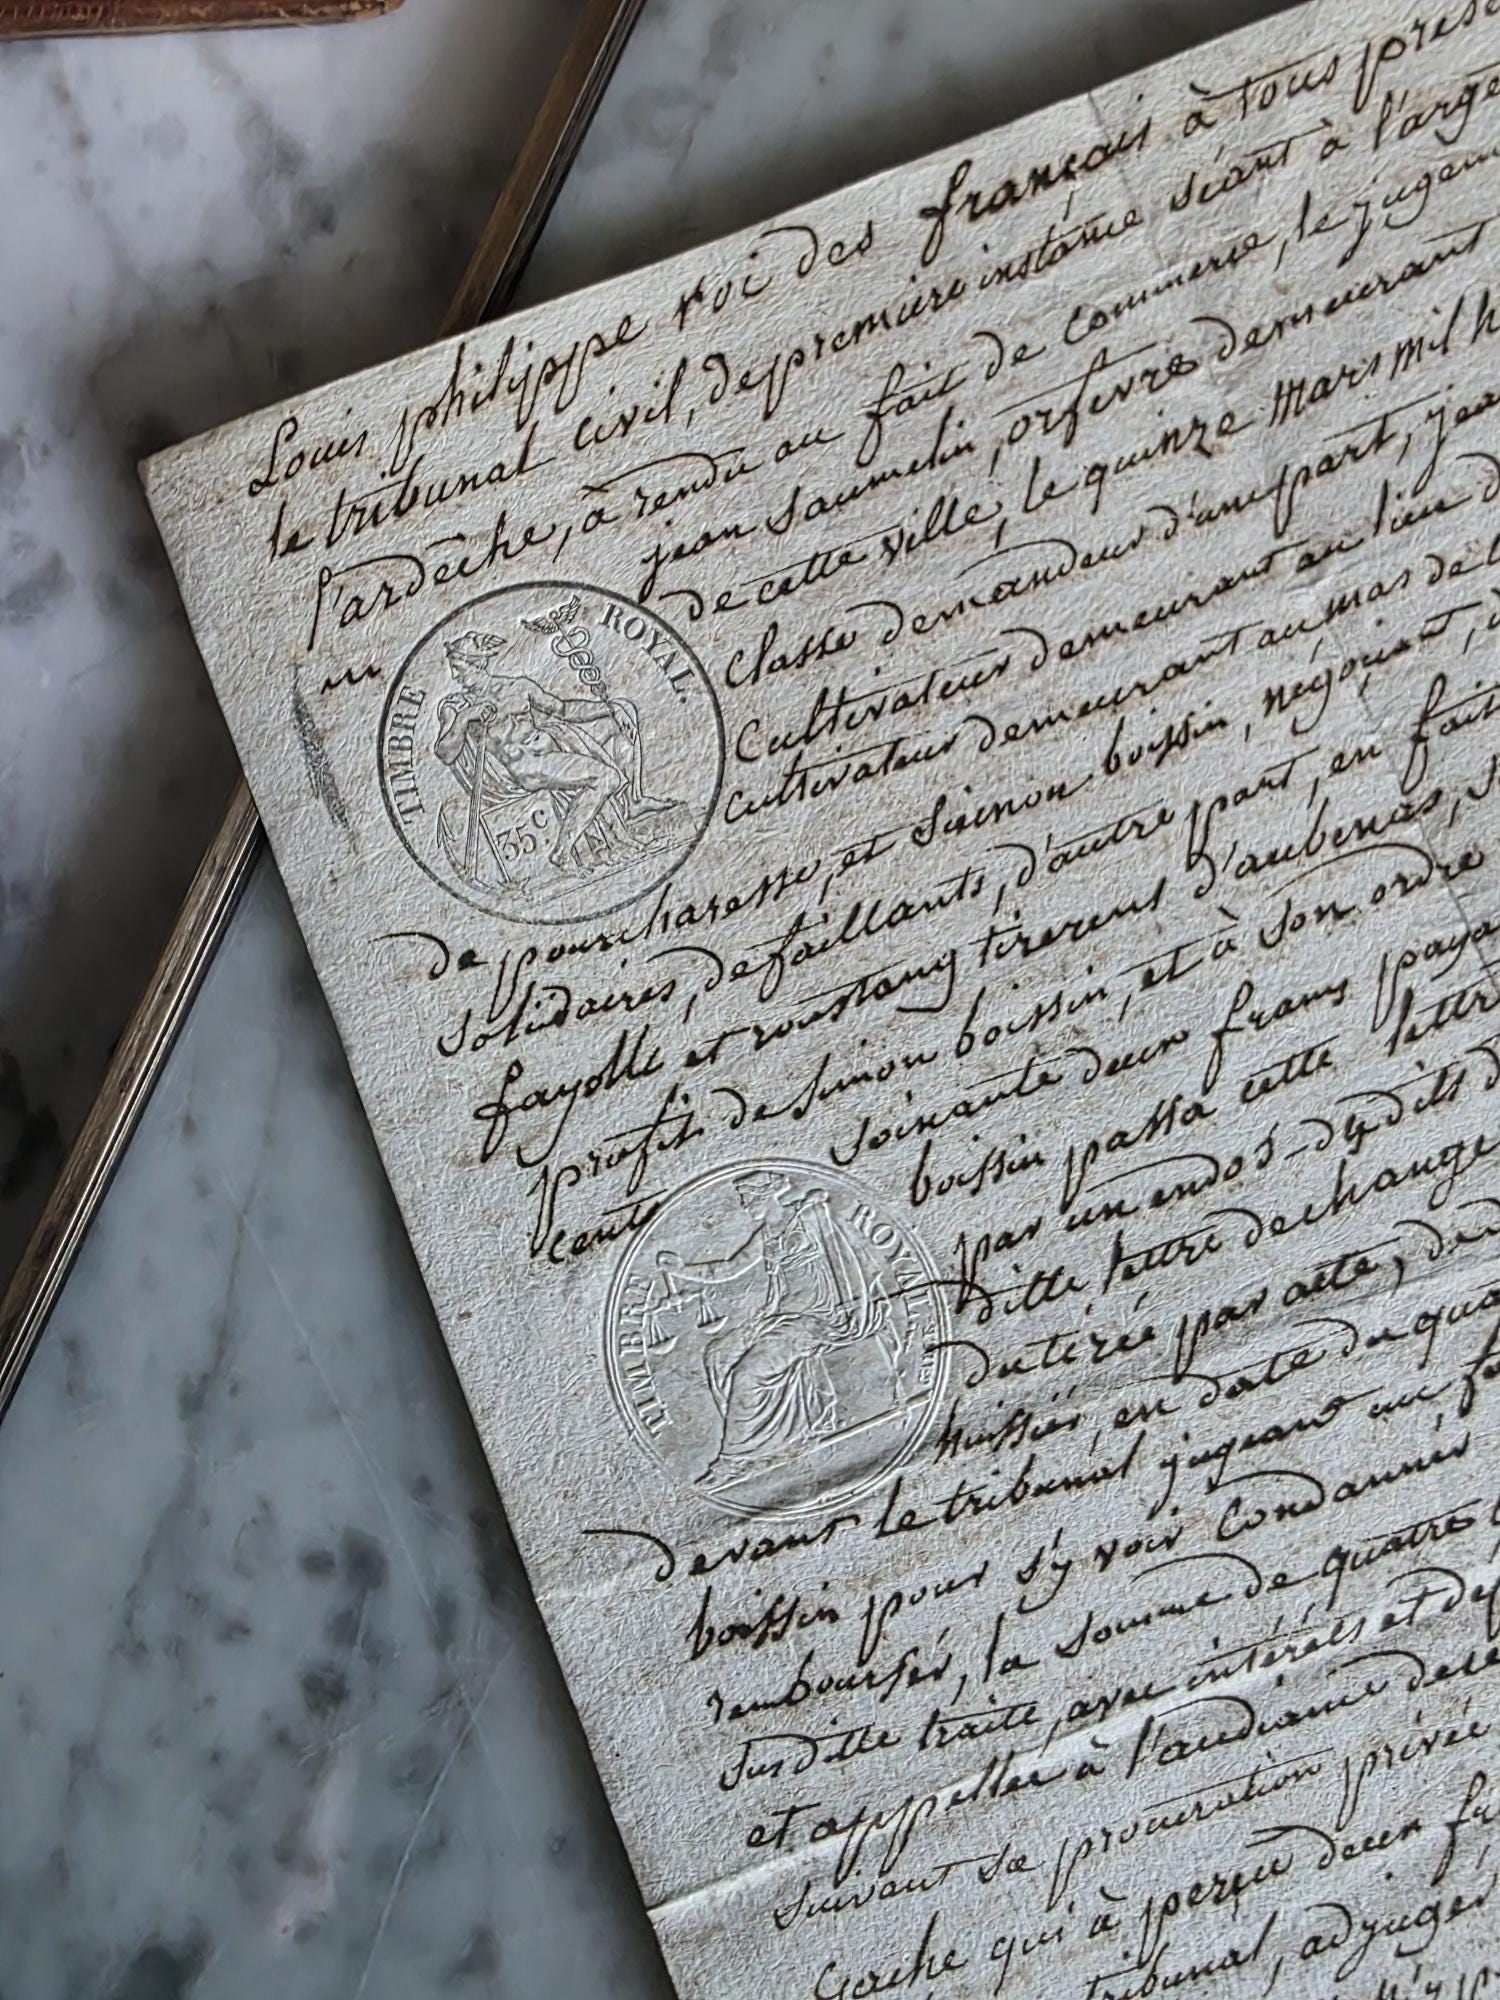 Louis philippe roi des français à tous prese
le tribunal civil, de premiere instance séant à l'arge
l'ardèche, à rendu au fait de commerce, le jugem
jean Saumelin, orfevre demeurant
de cette ville, le quinze mars mil h
TIMBRE ROYAL.
35.c
classe demandeur d'une part, jea
cultivateur demeurant au lieu d
cultivateur demeurant au mas de l
de pourcharesse, et Simon boissin, négociant,
solidaires, defaillants, d'autre part, en fait
fayolle et roustang tirerent d'aubenas,
profit de Simon boissin, et à son ordre
cents soixante deux francs paya
boissin passa cette lettre
TIMBRE ROYAL
par un endos-dydits d
ditte lettre dechange
du tiréé par acte, de
huissier, en date du qua
devant le tribunal jugeant au fa
boissin pour s'y voir condamner
rembourser, la somme de quatre c
susditte traite, avec intérêts et dep
et appellée à l'audiance de ce
suivant sa procuration privée
Gache qui à perçu deux fr
tribunal, adjuger